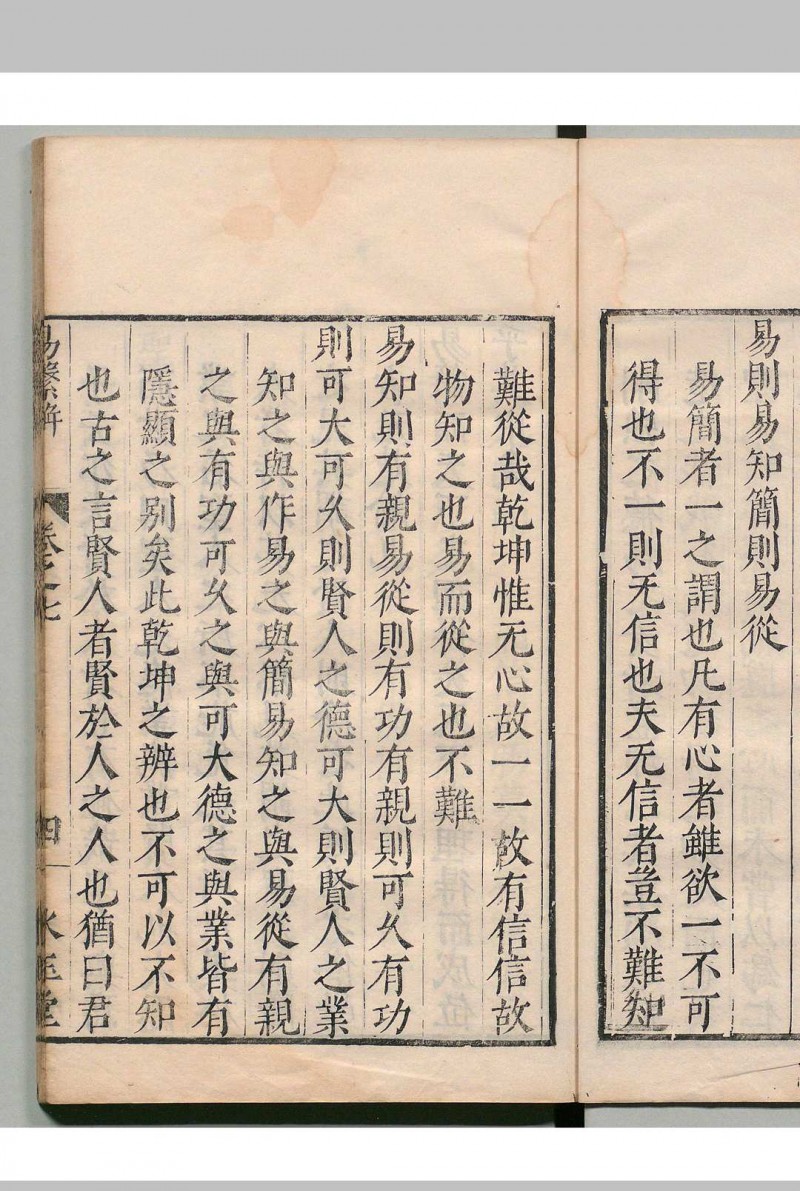 易則易知簡則易從
易簡者一之謂也凡有心者雖欲一不可
得也不一則无信也夫无信者豈不難知
難從哉乾坤惟无心故一一故有信信故
物知之也易而從之也不難
易知則有親易從則有功有親則可久有功
則可大可久則賢人之德可大則賢人之業
知之與作易之與簡易知之與易從有親
之與有功可久之與可大德之與業皆有
隱顯之別矣此乾坤之辨也不可以不知
也古之言賢人者賢於人之人也猶曰君
易繫解 卷之七 四 冰玉堂